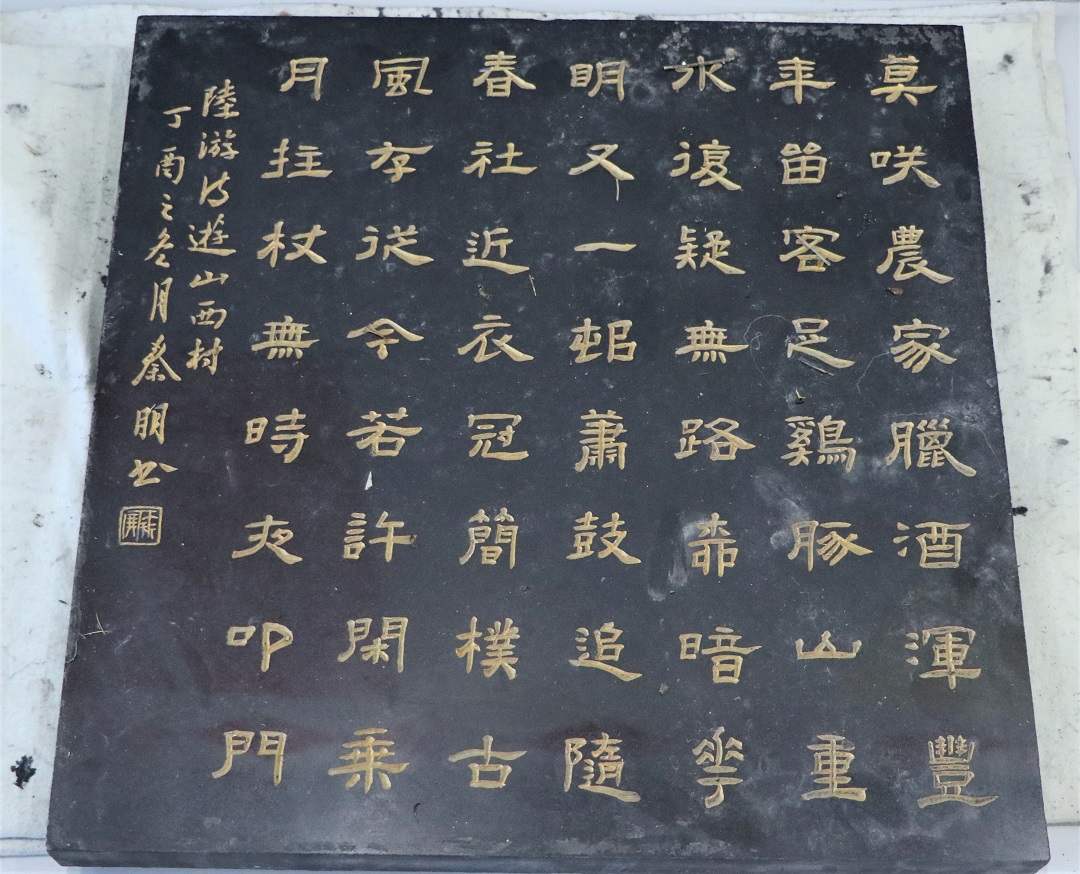 莫咲農家臘酒渾豐
年留客足鷄豚山重
水復疑無路桺暗華
明又一邨蕭鼓追隨
春社近衣冠簡樸古
風存從今若許閑乘
月拄杖無時夜叩門
陸游诗遊山西村
丁酉之冬月秦朋书